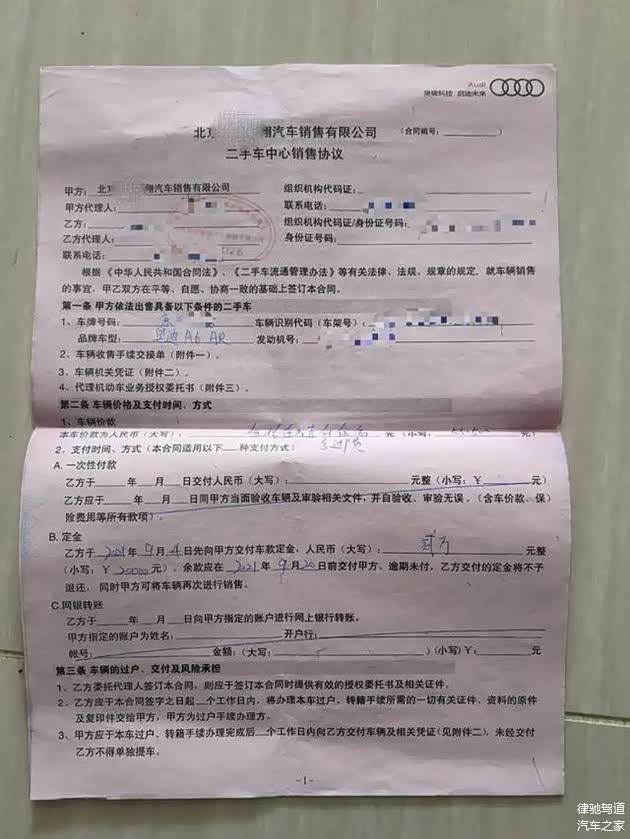 Audi
突破科技 启迪未来
北京 翔汽车销售有限公司 （合同编号：）
二手车中心销售协议
甲方：北京 翔汽车销售有限公司 组织机构代码证：
甲方代理人： 联系电话：
乙方： 组织机构代码证/身份证号码：
乙方代理人： 身份证号码：
联系电话：
根据《中华人民共和国合同法》、《二手车流通管理办法》等有关法律、法规、规章的规定，就车辆销售
的事宜，甲乙双方在平等、自愿、协商一致的基础上签订本合同。
第一条 甲方依法出售具备以下条件的二手车
1、车牌号码： 车辆识别代码（车架号）：
品牌车型：奥迪 A6 AR 发动机号：
2、车辆收售手续交接单（附件一）。
3、车辆相关凭证（附件二）。
4、代理机动车业务授权委托书（附件三）。
第二条 车辆价格及支付时间、方式
1、车辆价款
本车价款为人民币（大写）： 元（小写：
2、支付时间、方式（本合同适用以下 种支付方式）
A. 一次性付款
乙方于 年 月 日交付人民币（大写）： 元整（小写：￥ 元）
乙方应于 年 月 日同甲方当面验收车辆及审验相关文件，并自验收、审验无误。（含车价款、保
险费用等所有款项）。
B. 定金
乙方于 2021年 9月 4日先向甲方交付车款定金，人民币（大写）： 贰万 元整
（小写：￥ 20000元）。余款应在 2021年 9月20日前交付甲方。逾期未付，乙方交付的定金将不予
退还，同时甲方可将车辆再次进行销售。
C.网银转账
乙方于 年 月 日向甲方指定的账户进行网上银行转账。
甲方指定的账户为姓名： 开户行：
帐号： 金额：（大写： ）（小写）￥： 元
第三条 车辆的过户、交付及风险承担
1、乙方委托代理人签订本合同，则应于签订本合同时提供有效的授权委托书及相关证件。
2、乙方应于本合同签字之日起 个工作日内，将办理本车过户、转籍手续所需的一切有关证件、资料的原件
及复印件交给甲方，甲方为过户手续办理方。
3、甲方应于本车过户、转籍手续办理完成后 个工作日内向乙方交付车辆及相关凭证（见附件二），未经交付
乙方不得单独提车。
-1-
律驰驾道
汽车之家